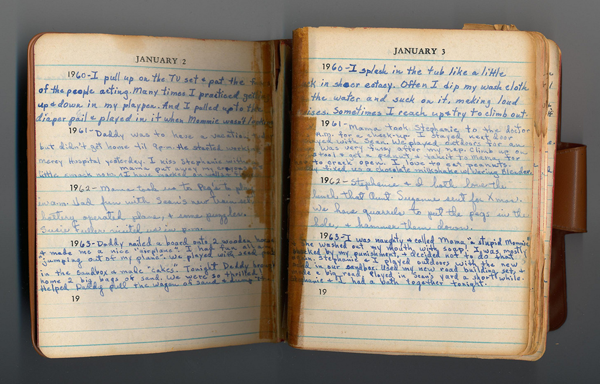 JANUARY 2
1960-I pull up on the TV set & pat the
of the people acting. Many times I practiced
up & down in my playpen. And I pulled up to the
diaper pail & played in it when Mommie wasn't
1961-Daddy was to have a vacation
but didn't get home til 9pm. He started
mercy Hospital yesterday. I kiss Stephanie
mama put away my
little
1962-Mama took us to Peg's to play
had fun with Sean's new train set,
battery operated plane, & some puzzles.
Susie Fuller visited us in
1963-Daddy nailed a board onto 2 wooden horses
& made me a nice "airplane". I had fun at
"jumping out of my plane". We played with sand pail
in the sandbox & made "cakes". Tonight Daddy brought
home 2 big bags of sand. We were so thrilled! I
helped Daddy pull the wagon of sand & dump
19
JANUARY 3
1960-I splash in the tub like a little
in sheer ecstasy. Often I dip my wash cloth
the water and suck on it, making loud
noises. Sometimes I reach up & try to climb out.
1961-Mama took Stephanie to the doctor
A.M. for a check-up. I stayed next door
played with Sean. We played outdoors for an
hour. This very funny after my nap, I climb up on
stool & get a peanut, & take it to Mama, for
to crack open. I love to eat peanuts.
fixed us a chocolate milkshake w/Waring Blender.
1962-Stephanie & I both love the
bench that Aunt Suzanne sent for Xmas.
We have quarrels to put the pegs in the
hole, & hammer them down.
1963-I was naughty & called Mama, "a stupid Mommie"
she washed out my mouth with soap! I was mostly
shocked by my punishment, & decided not to do that
Stephanie & I played outdoors with the new
sand in our sandbox. Used my new road building set, &
made a big road. Played in Sean's yard a short while.
Stephanie & I had a bath together tonight.
19